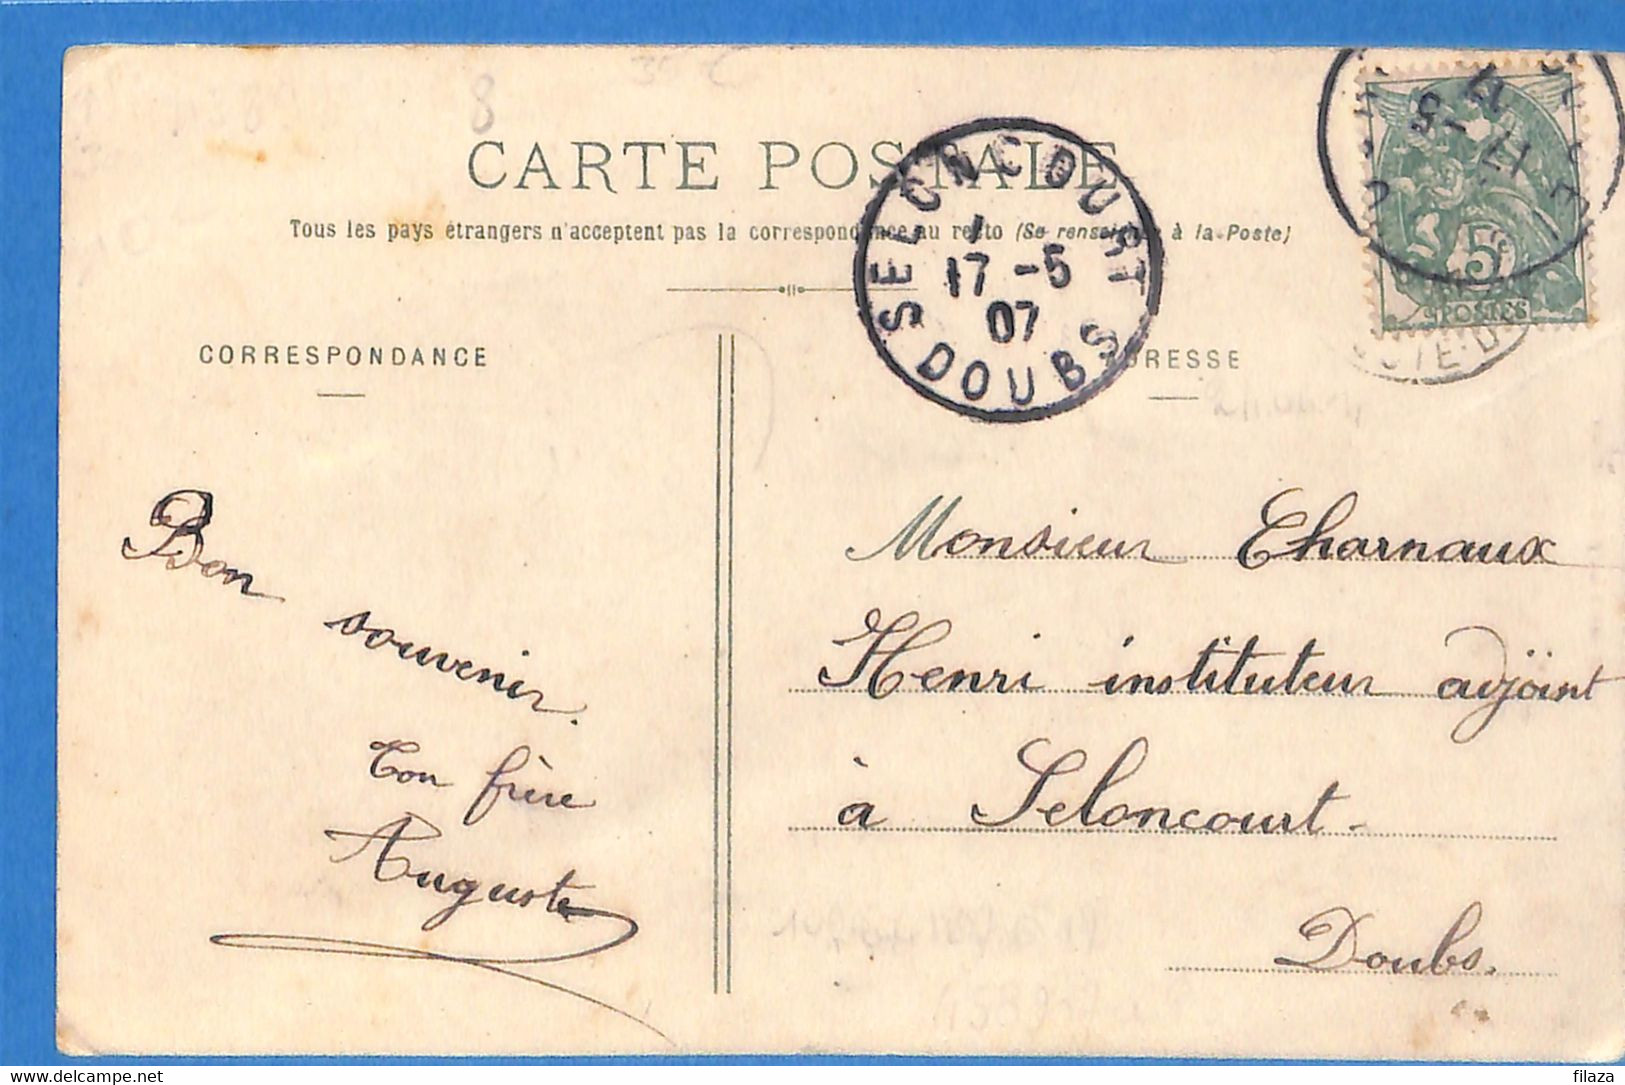 CARTE POSTALE
Tous les pays étrangers n'acceptent pas la correspondance au recto (Se renseigner à la Poste)
CORRESPONDANCE
ADRESSE
SELONCOURT
17 -5
07
DOUBS
17 -5
5c
POSTES
Bon
souvenir.
Ton frère
Auguste
Monsieur Charnaux
Henri instituteur adjoint
à Seloncourt
Doubs.
delcampe.net
filaza